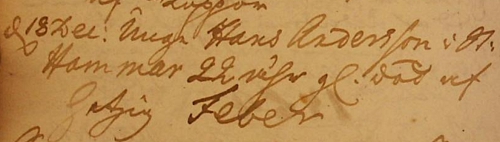 af Koppor
d 18 Dec: Unge Hans Andersson i St:
Hammar 22 åhr gl. död af
hetzig Feber